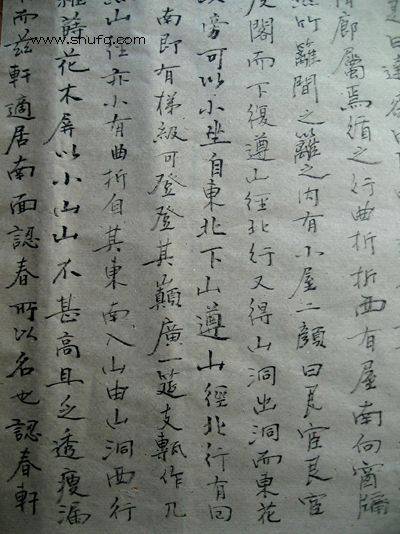 曰達齋
廊屬焉循之行曲折折西有屋南向窗牖
然竹籬間之籬之內有小屋二顏曰艮宧艮宧
度閣而下復遵山徑北行又得山洞出洞而東花
傍可以小坐自東北下山遵山徑北行有回
南即有梯級可登登其巔廣一筵支甎作几
山徑亦小有曲折自其東南入山由山洞西行
雜蒔花木屏以小山山不甚高且乏透瘦漏
而茲軒適居南面認春所以名也認春軒
www.shufa.com